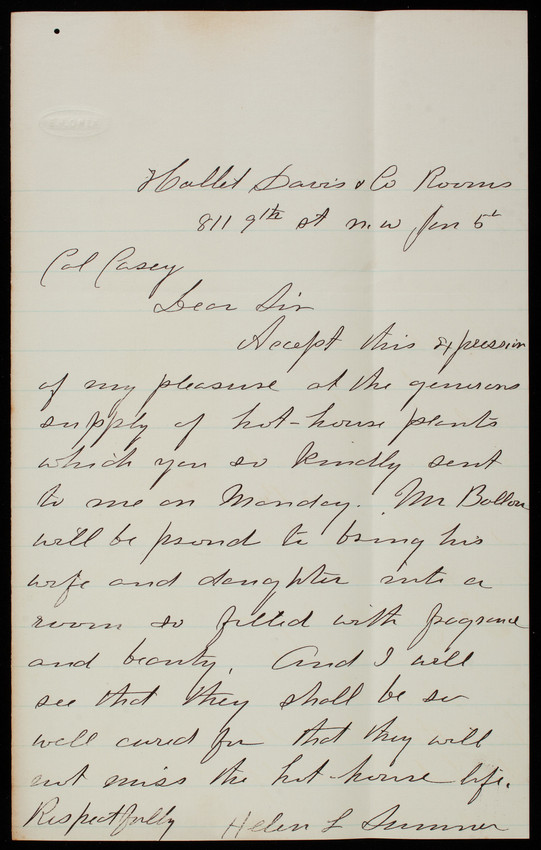 Hallet Davis & Co Rooms
811 9th st n.w Jan 5
Col Casey
Dear Sir
Accept this expression
of my pleasure at the generous
supply of hot-house plants
which you so kindly sent
to me on Monday. Mr Ballou
will be proud to bring his
wife and daughter into a
room so filled with fragrance
and beauty. And I will
see that they shall be so
well cared for that they will
not miss the hot-house life.
Respectfully Helen L Sumner